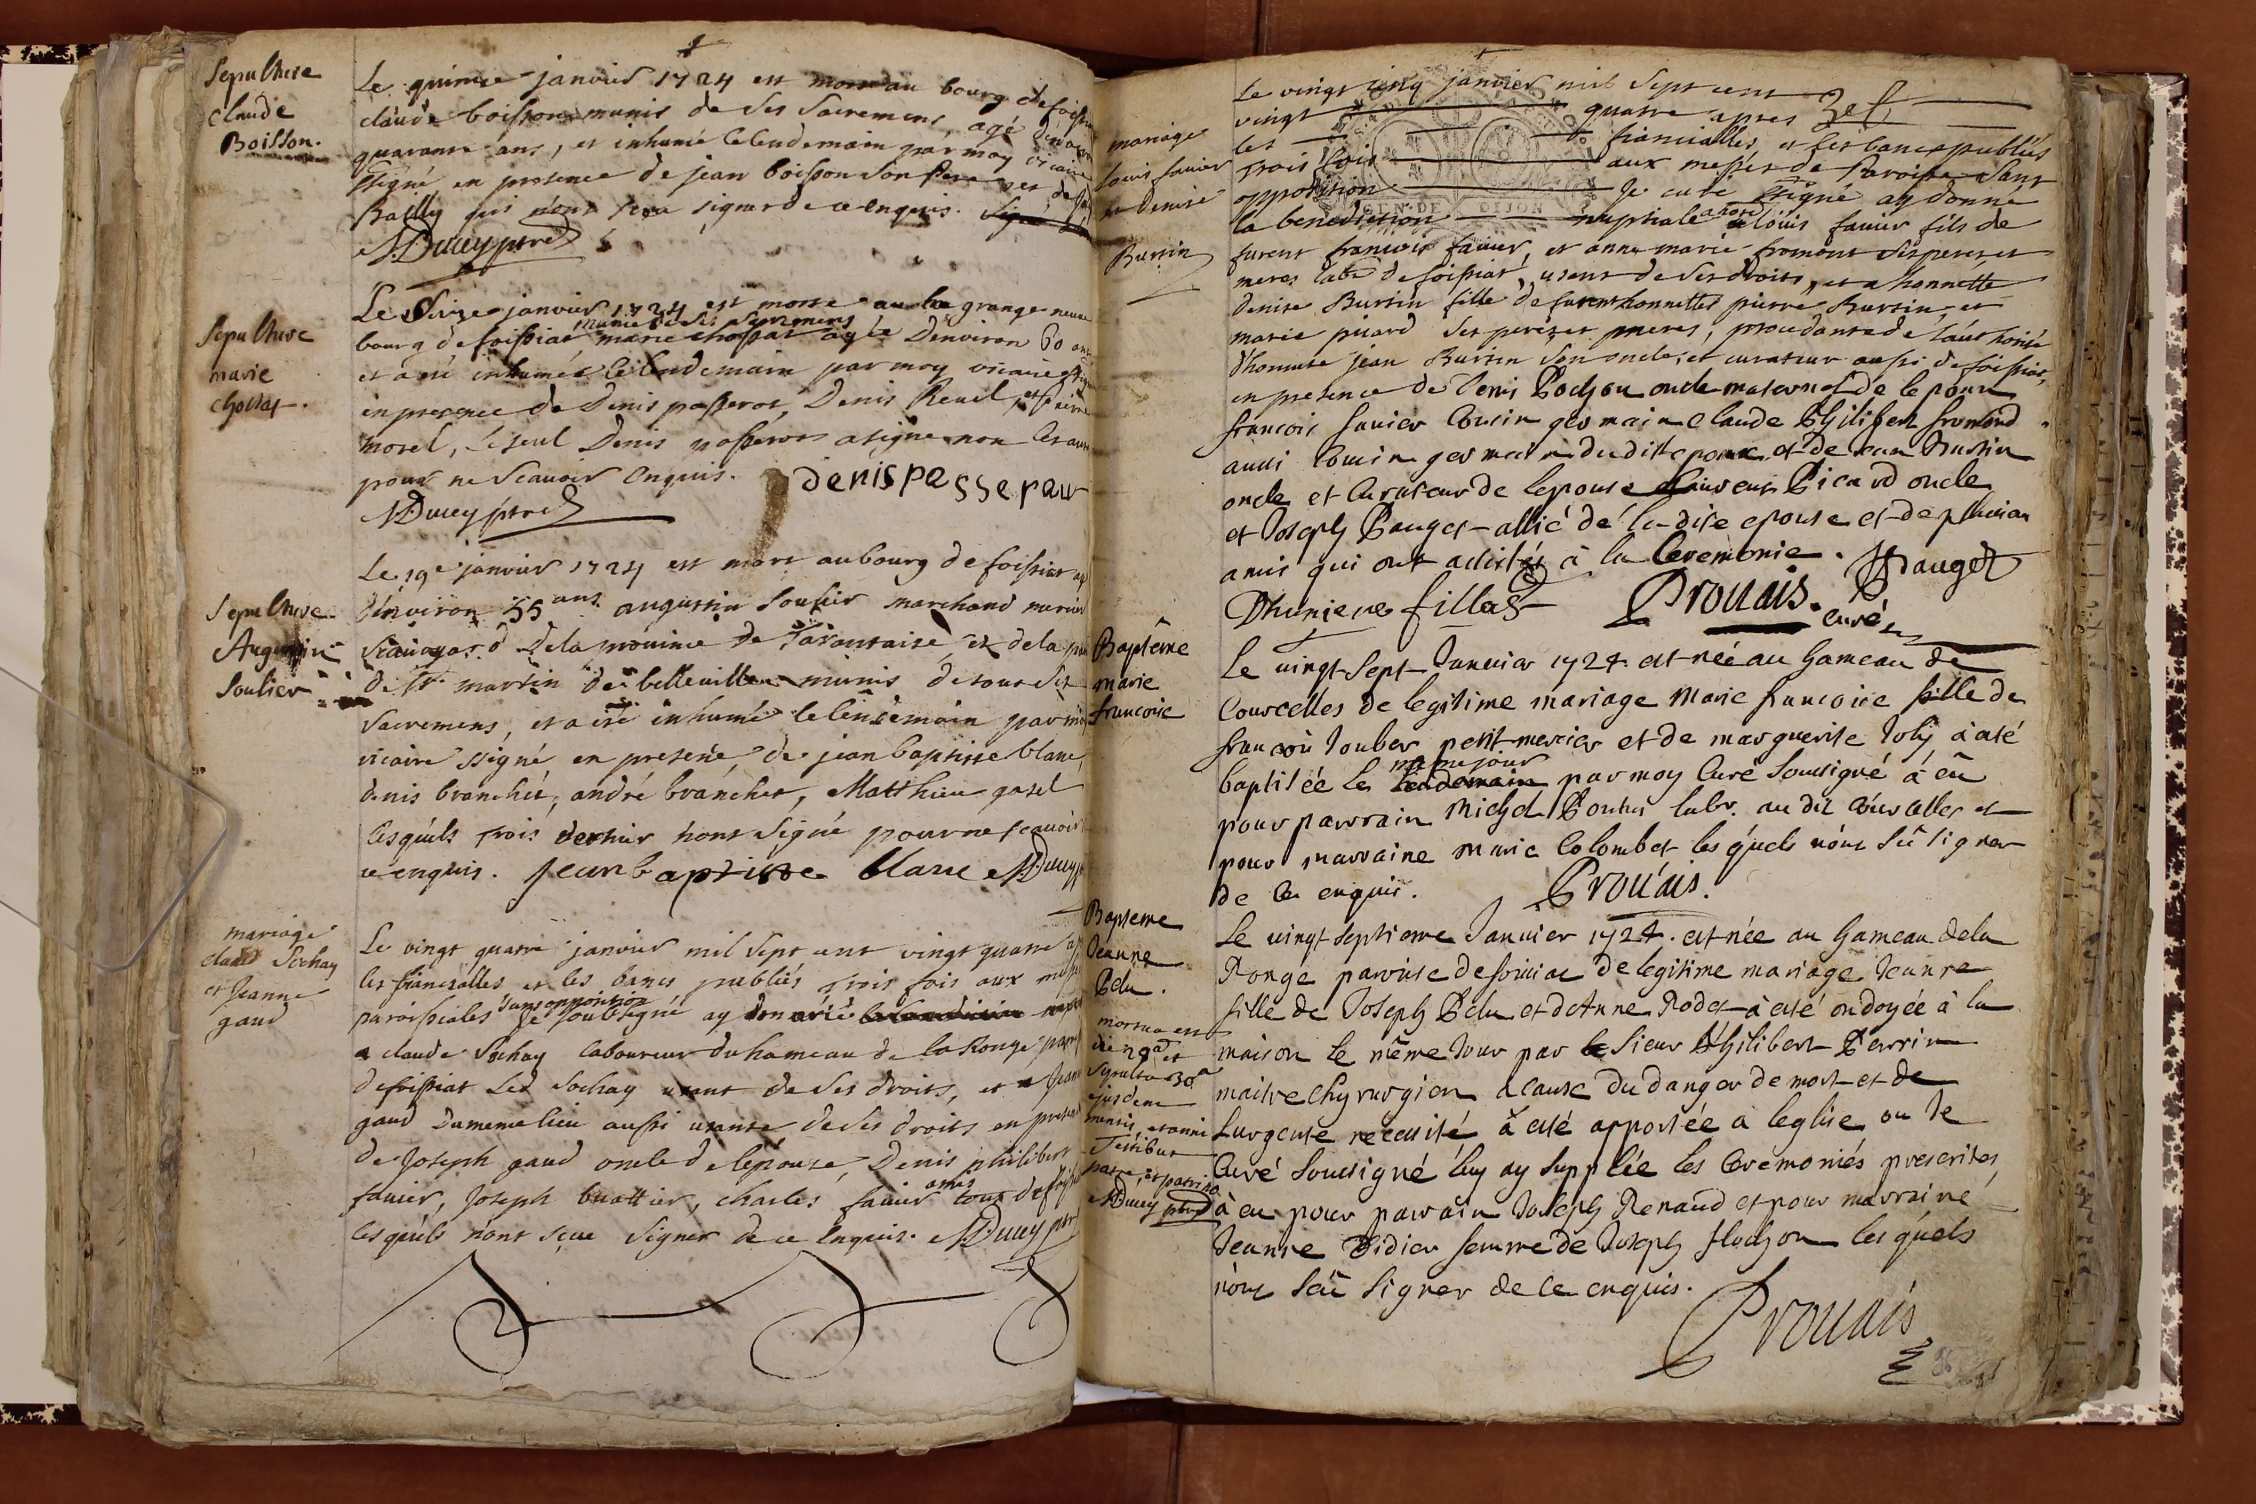 Sepulture
Claude
Boisson.
Le quinze janvier 1724 est mort au bourg de foissia
claude boisson munis de ses sacremens, agé denviron
quarante ans, et inhumé le lendemain par moy vicaire
ssigné en presence de jean boisson son pere et de
Bailly qui n'ont sceu signer de ce enquis.
MDucy ptre
Sepulture
marie
chossat.
Le Seize janvier 1724 est morte au la grange neuve
munie de ses sacremens
bourg de foissiat marie chossat agée Denviron 60 ans
et a été inhumée le lendemain par moy vicaire ssigné
en presence de Denis passerat, Denis Reuil, et
morel, le seul Denis passerat a signé non les autres
pour ne scavoir enquis. denis passerau
MDucy ptre
Sepulture
Augustin
Soulier
Le 19e janvier 1724 est mort au bourg de foissiat agé
d'environ 55 ans augustin soulier marchand mercier
scavoyard de la province de Tarantaise et de la
de St martin de belleville munis de tous ses
sacremens, et a été inhumé le lendemain par moy
vicaire ssigné en presence de jean baptiste blanc,
denis branchet, andré branchet, Matthieu gasel
lesquels trois dernier n'ont signé pour ne scavoir
ce enquis. jean baptisse blanc MDucy
mariage
claude Sochay
et Jeanne
gaud
Le vingt quatre janvier mil sept cent vingt quatre
les fiancialles et les bancs publiés trois fois aux messes
sans opposition
paroissiales je soubsigné ay donné
a claude Sochay laboureur du hameau de la Ronge
de foissiat Led Sochay usant de ses droits, et a Jeanne
gaud du meme lieu aussi usante de ses droits en presence
de Joseph gaud oncle de l'épouse, Denis philibert
amis
favier, Joseph buattier, charles favier tous de foissiat
lesquels n'ont sçeu signer de ce enquis. MDucy ptre
mariage
Louis favier
et denise
Burtin
Le vingt cinq janvier mil sept cent
vingt quatre apres
les fiancialles, et les bancs publiés
trois fois aux messes de Paroisse sans
opposition Je curé ssigné ay donné
la benediction nuptiale a Loüis favier fils de
furent francois favier, et anne marie fromont ses peres et
meres labr de foissiat, usant de ses droits, et a honnette
denise Burtin fille de furent honnettes pierre Burtin, et
marie picard ses peres et meres, procedante de l'authorité
d'honnete jean Burtin son oncle, et curateur aussi de foissiat,
en presence de Denis Pochon oncle maternel de le poux
francois favier cousin germain Claude Philibert fromond
aussi Cousin germain dudit epoux, et de Jean Burtin
oncle et Curateur de l'epouse Laurent Picard oncle
et Joseph Pauget allié de la dite epouse et de plusieurs
amis qui ont assistés à la Ceremonie. JPauget
Dhunieres fillas Prouais. curé
Baptême
marie
francoise
Le vingt Sept Janvier 1724 est née au hameau de
Courcelles de legitime mariage Marie francoise fille de
francois Jouber petit mercier et de marguerite Joly à été
même jour
baptisée le lendemain par moy Curé soussigné à eû
pour parrain Michel Ponthus labr. au dit Courcelles et
pour marraine Marie Colombet lesquels n'ont sû signer
de ce enquis. Prouais.
Bapteme
Jeanne
Pelu.
Le vingt septieme Janvier 1724. est née au hameau de la
Ronge paroisse de foissiac de legitime mariage Jeanne
fille de Joseph Pelu et d'Anne Rodet à été ondoyée à la
maison le même Jour par le Sieur Philibert Perrin
maitre Chyrurgien a cause du danger de mort et de
l'urgente necessité à été apportée à l'eglise ou Je
Curé soussigné luy ay supplée les Ceremoniés prescrites
à eu pour parrain Joseph Renaud et pour marraine
Jeanne Didier femme de Joseph flochon lesquels
n'ont sçû signer de ce enquis.
mortua est
die 29a et
sepulta 30a
ejusdem
mensis, et anni
Testibus
patre, et patrino
MDucy ptre
Prouais